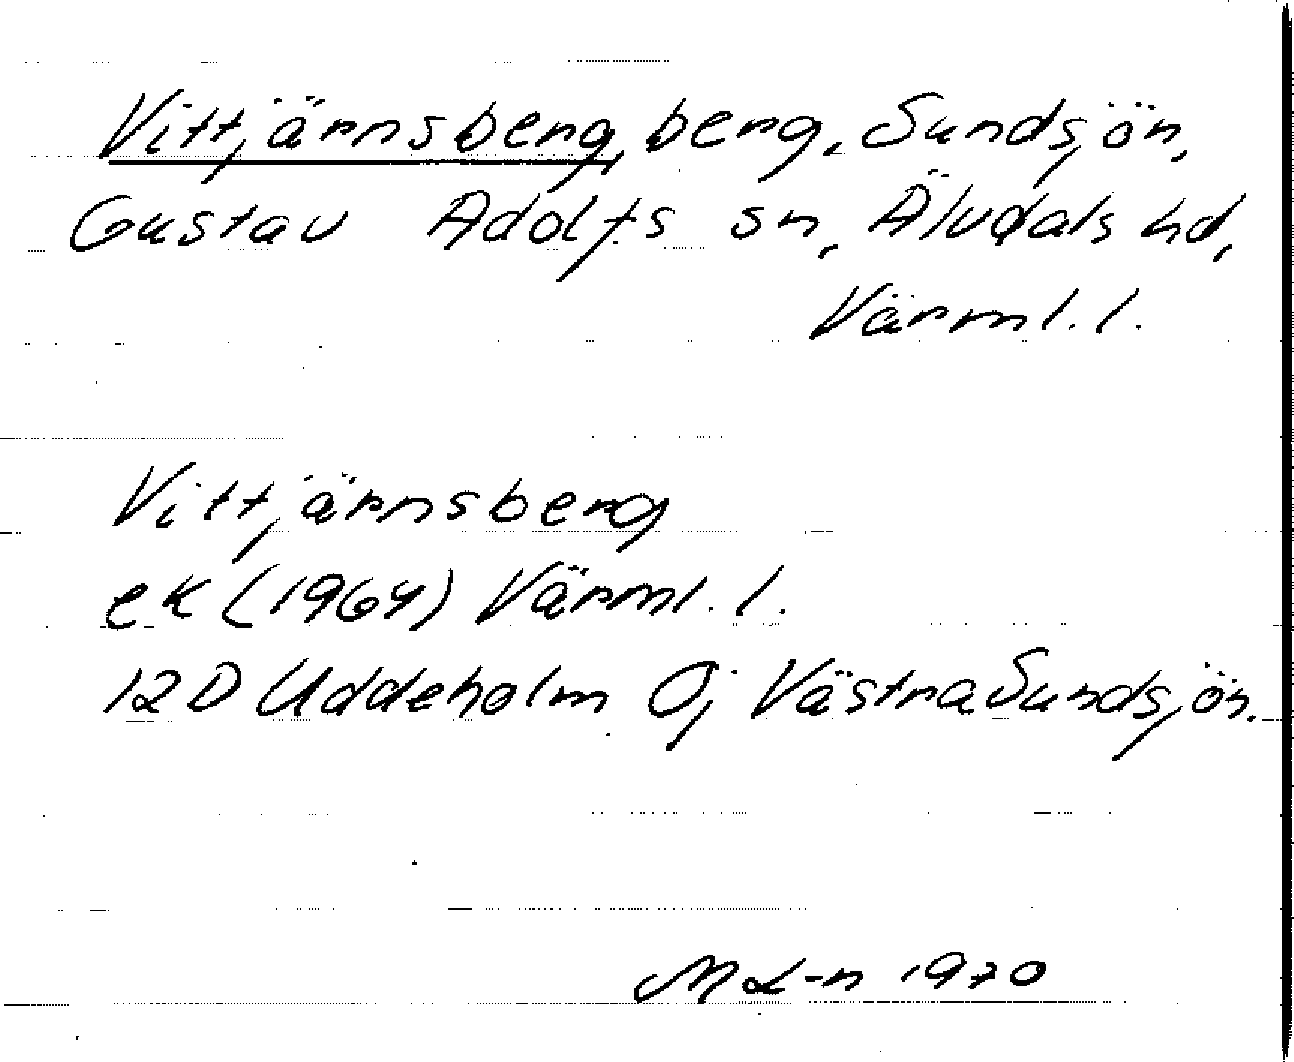 Vittjärnsberg, berg, Sundsjön,
Gustav Adolfs sn, Älvdals hd,
Värml. l.
Vittjärnsberg
ek (1964) Värml. l.
12D Uddeholm 0j Västra Sundsjön.
M L-n 1970